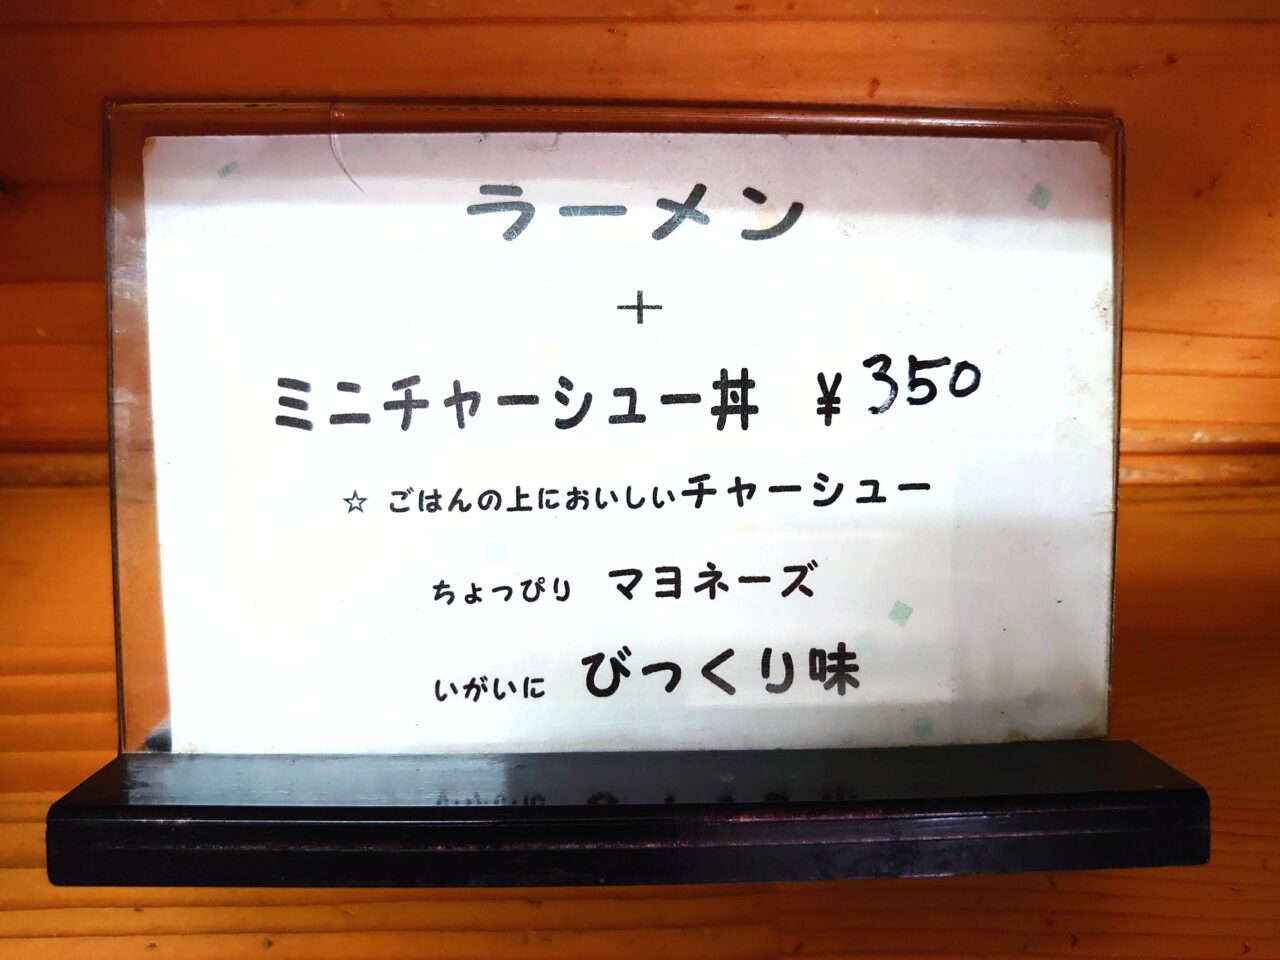 ラーメン
＋
ミニチャーシュー丼 ￥350
☆ ごはんの上においしいチャーシュー
ちょっぴり マヨネーズ
いがいに びっくり味